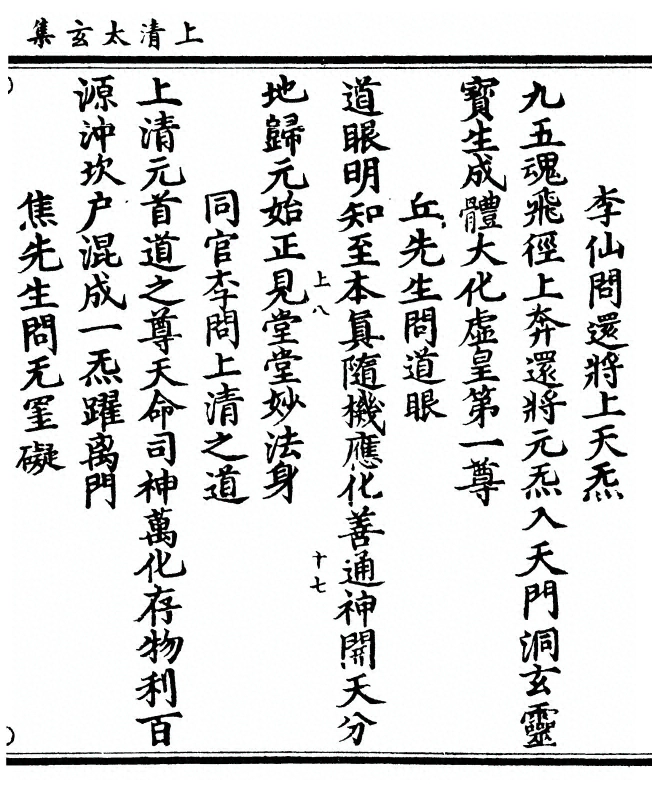 上清太玄集
李仙問還將上天炁
九五魂飛徑上奔還將元炁入天門洞玄靈
寶生成體大化虛皇第一尊
丘先生問道眼
道眼明知至本真隨機應化善通神開天分
上八
十七
地歸元始正見堂堂妙法身
同官李問上清之道
上清元首道之尊天命司神萬化存物利百
源沖坎户混成一炁躍离門
焦先生問无罣礙